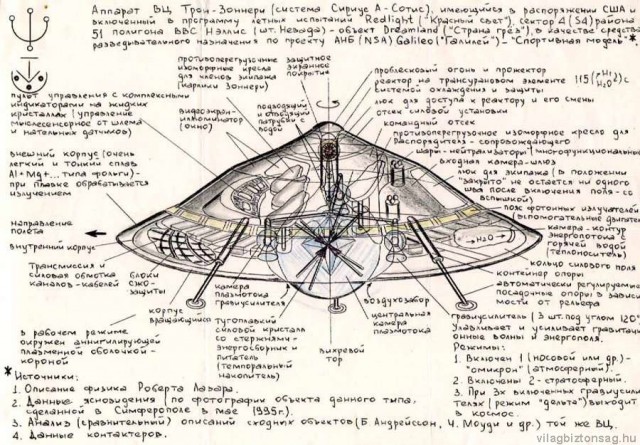 Аппарат ВЦ Трон-Зоннери (система Сириус А-Сотис), имеющийся в распоряжении США и
включенный в программу летных испытаний Redlight ("Красный свет"), сектор 4 (S4) района
51 полигона ВВС Нэллис (шт. Невада) - объект Dreamland ("Страна грёз"), в качестве средства
разведывательного назначения по проекту АНБ (NSA) Galileo ("Галилей") - "Спортивная модель" *
противоперегрузочные
изоморфные кресла
для членов экипажа
(карлики Зоннери)
защитное
экранное
покрытие
пульт управления с комплексными
индикаторами на жидких
кристаллах (управление
мыслесенсорное от шлема
и нательных датчиков)
видеоэкран-
иллюминатор
(окно)
подводящий и
отводящий
патрубки с
водой
проблесковый огонь и прожектор
реактор на трансурановом элементе 115
системой охлаждения и защиты
люк для доступа к реактору и его смены
отсек силовой установки
командный отсек
противоперегрузочное изоморфное кресло для
Распорядителя - сопровождающего
шары-нейтрализаторы (многофункциональные)
входная камера-шлюз
люк для экипажа (в положении
"закрыто" не остается ни одного
шва после включения поля - со
вспышкой)
пояс фотонных излучателей
(вспомогательные двигатели
внешний корпус (очень
легкий и тонкий сплав
Al+Mg+... типа фольги) -
при плавке обрабатывается
излучением
направление
полета
внутренний корпус
H₂O
камера-контур
энергопотока
горячей водой
(теплоноситель)
кольцо силового поля
контейнер опоры
автоматически регулируемые
посадочные опоры в зависи-
мости от рельефа
Трансмиссия и
силовая обмотка
каналов-кабелей
блоки
СЖО-
защиты
корпус
вращающийся
камера
плазмотока
гравиусилителя
тугоплавкий
силовой кристалл
со стержнями-
энергосборник и
питатель
(темпоральный
накопитель)
вихревой
тор
воздухозабор
центральная
камера
плазмотока
гравиусилитель (3 шт. под углом 120°
Улавливает и усиливает гравитаци-
онные волны и энергополя.
Режимы:
1. Включен 1 (носовой или др.) -
"омикрон" (атмосферный).
2. Включены 2 - стратосферный.
3. При 3х включенных гравиусили-
телях (режим "дельта") выходит
в космос.
в рабочем режиме
окружен аннигилирующей
плазменной оболочкой-
короной
* Источники:
1. Описание физика Роберта Лазара.
2. Данные яснозвидения (по фотографии объекта данного типа,
сделанной в Симферополе в мае 1995г.).
3. Анализ (сравнительный) описаний сходных объектов (Б. Андрейссон, Ч. Моуди и др.) той же ВЦ.
4. Данные контактеров.
vilagbiztonsag.hu